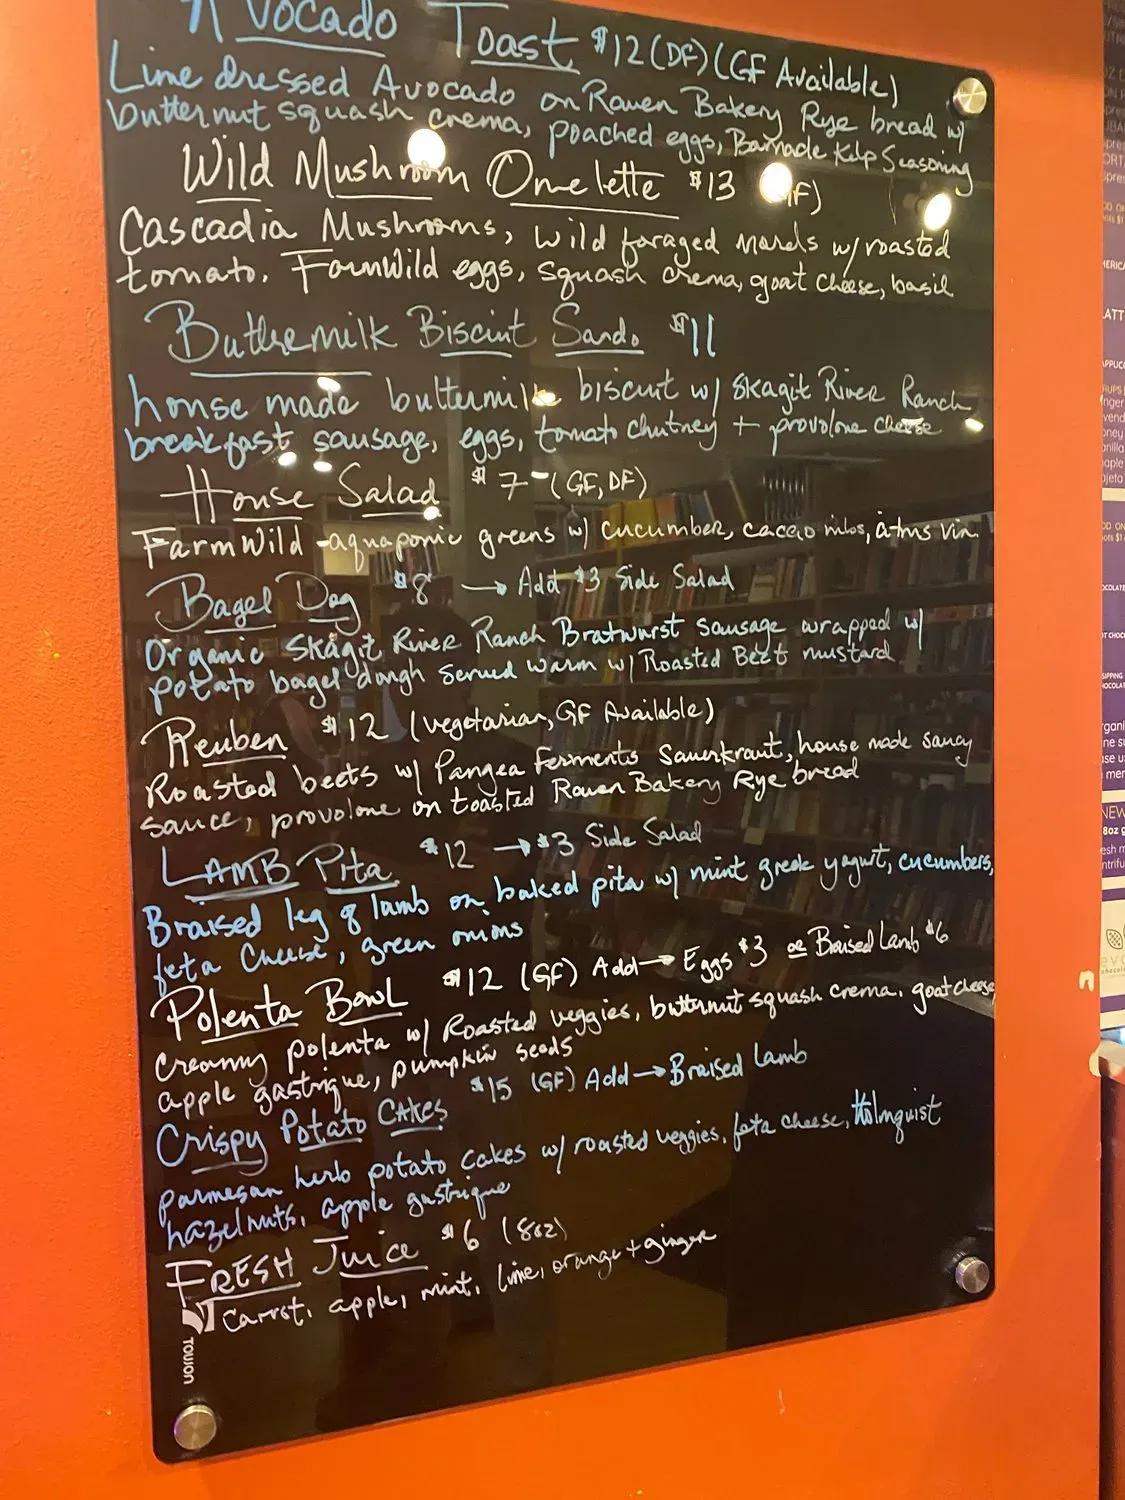 Avocado Toast $12 (DF) (GF Available)
Lime dressed Avocado on Raven Bakery Rye bread w/
butternut squash crema, poached eggs, Barnacle Kelp Seasoning
Wild Mushroom Omelette $13 (GF)
Cascadia Mushrooms, wild foraged morels w/ roasted
tomato. FarmWild eggs, squash crema, goat cheese, basil
Buttermilk Biscuit Sando $11
house made buttermilk biscuit w/ Skagit River Ranch
breakfast sausage, eggs, tomato chutney + provolone cheese
House Salad $7 - (GF, DF)
FarmWild -aquaponic greens w/ cucumber, cacao nibs, citrus vin.
Bagel Dog $8 → Add $3 Side Salad
Organic Skagit River Ranch Bratwurst sausage wrapped w/
potato bagel dough served warm w/ Roasted Beet mustard
Reuben $12 (vegetarian, GF Available)
Roasted beets w/ Pangea Ferments Sauerkraut, house made saucy
sauce, provolone on toasted Raven Bakery Rye bread
LAMB Pita $12 → $3 Side Salad
Braised leg of lamb on baked pita w/ mint greek yogurt, cucumbers,
feta cheese, green onions
Polenta Bowl $12 (GF) Add → Eggs $3 or Braised Lamb $6
creamy polenta w/ Roasted veggies, butternut squash crema, goat cheese,
apple gastrique, pumpkin seeds
Crispy Potato CAKES $15 (GF) Add → Braised Lamb
parmesan herb potato cakes w/ roasted veggies, feta cheese, Holmquist
hazelnuts, apple gastrique
FRESH Juice $6 (8oz)
Carrot, apple, mint, lime, orange + ginger
TOUJON